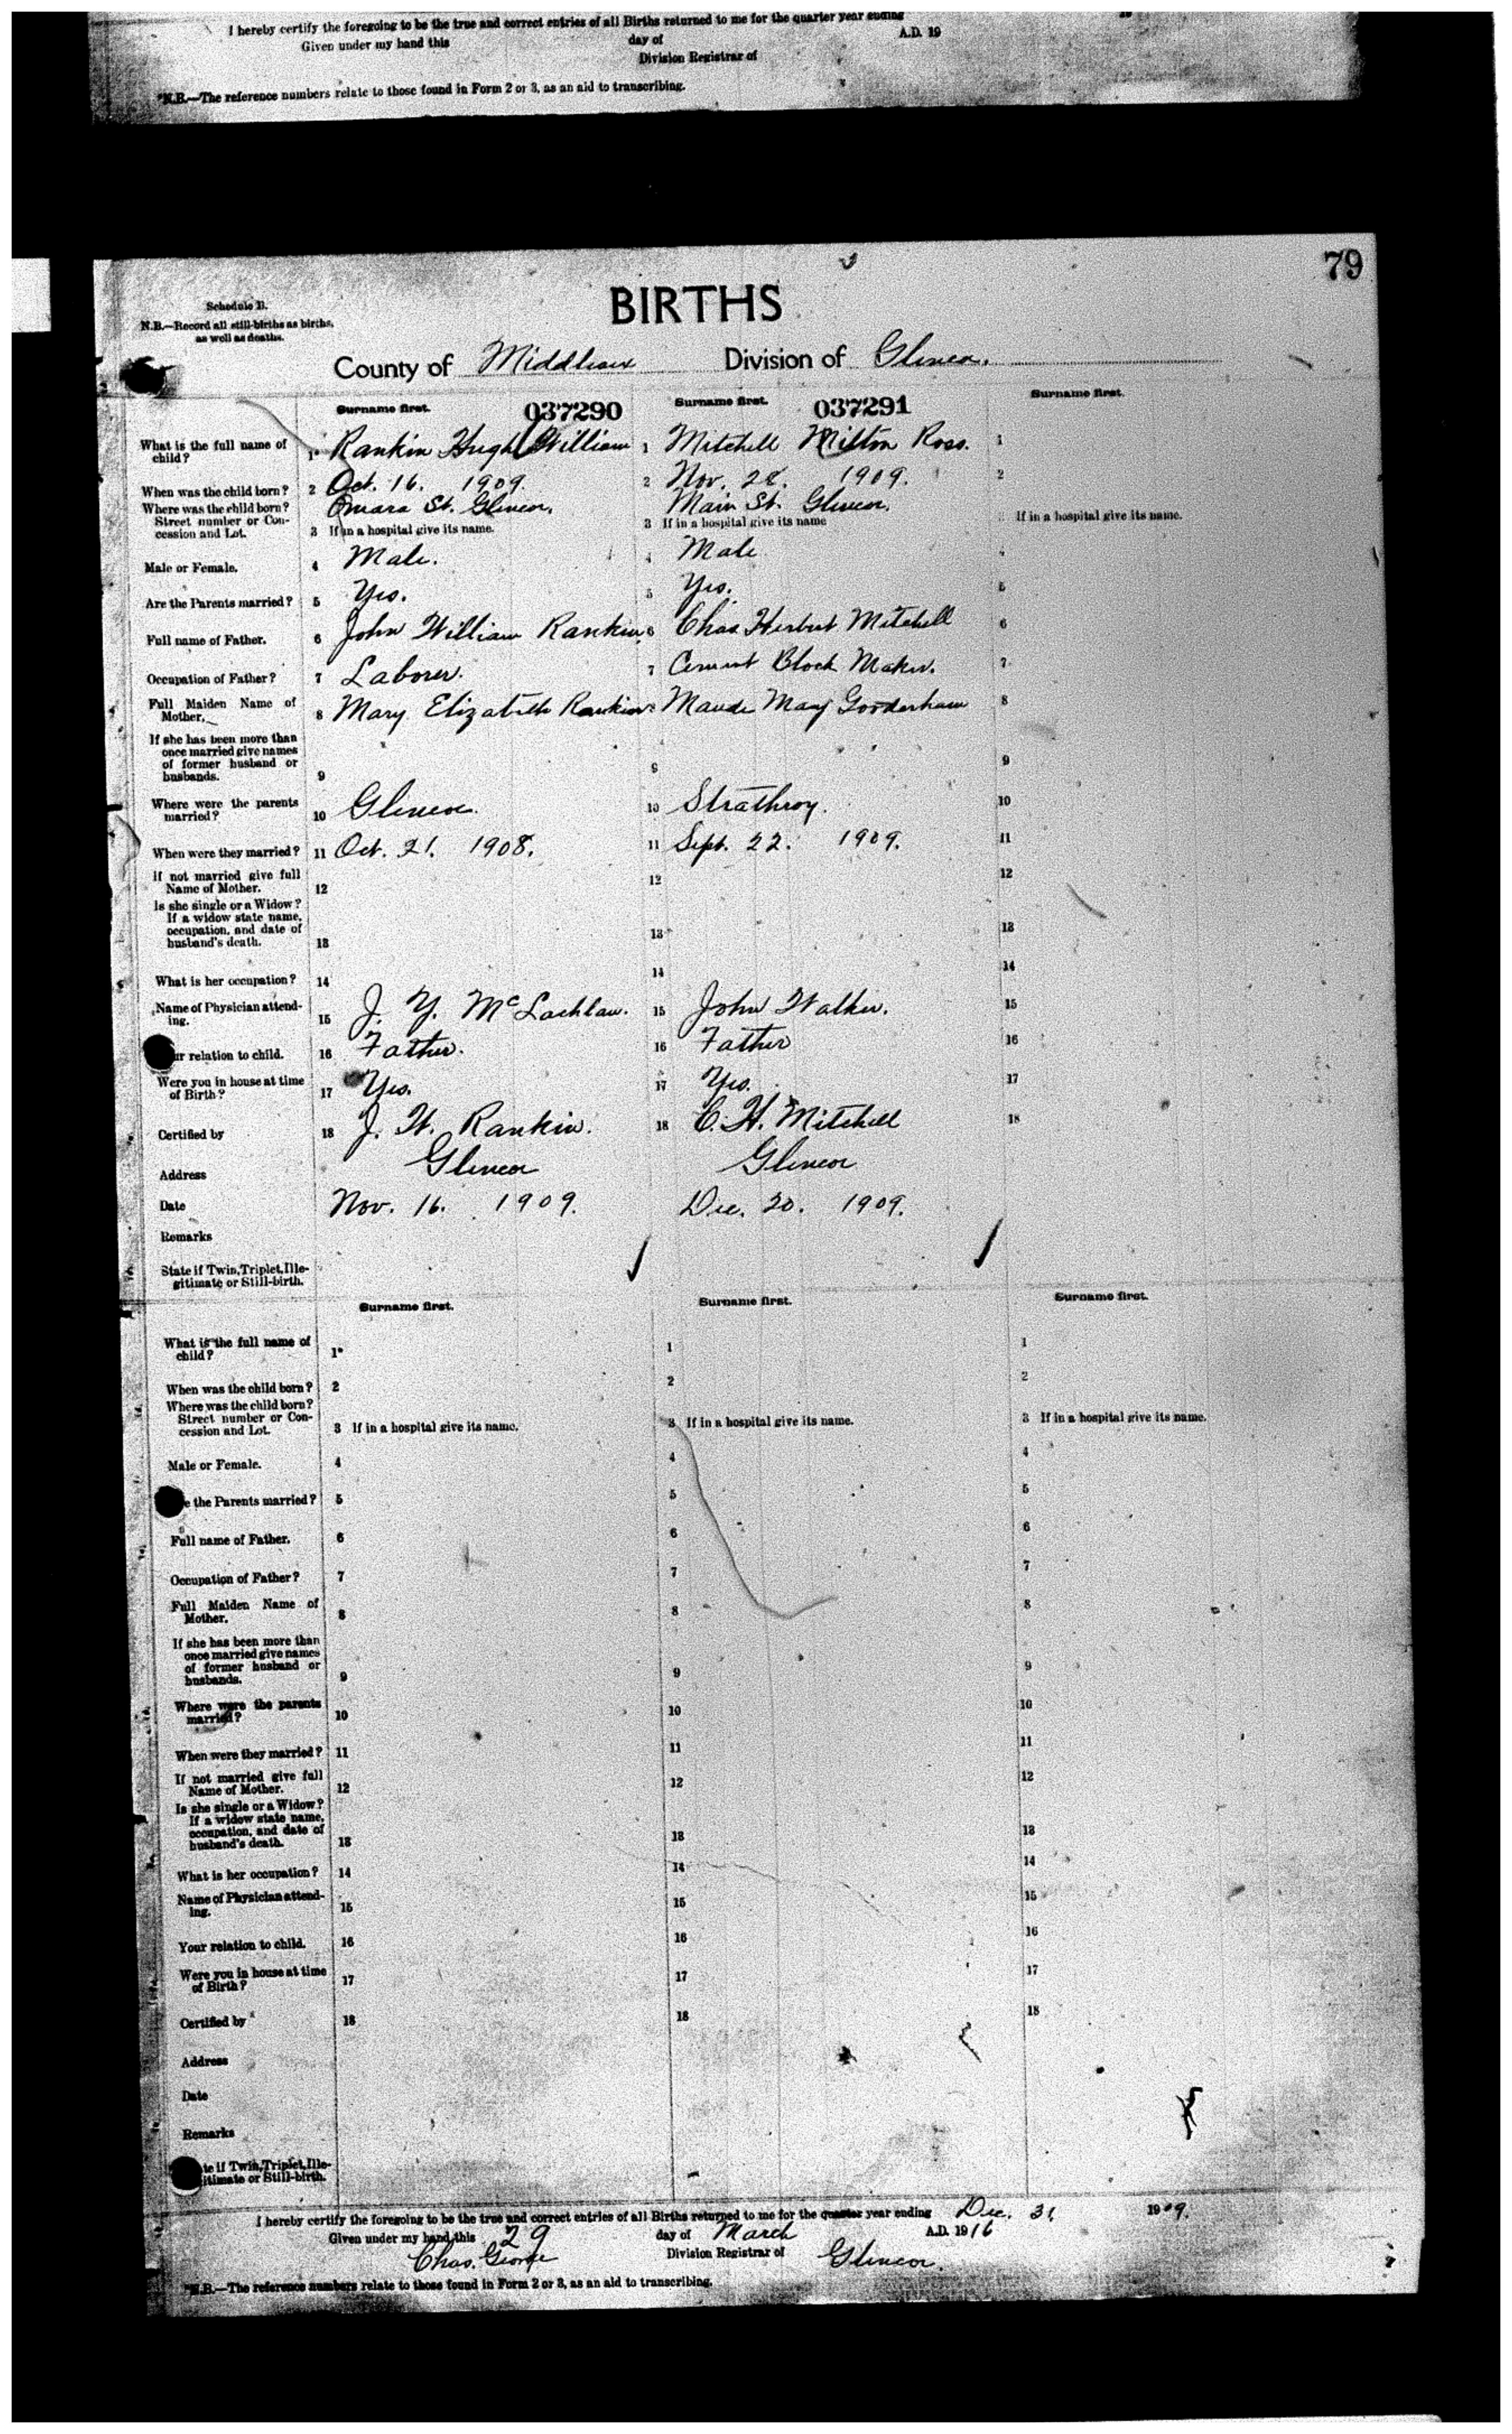 I hereby certify the foregoing to be the true and correct entries of all Births returned to me for the quarter year ending
Given under my hand this day of A.D. 19
Division Registrar of
*N.B.—The reference numbers relate to those found in Form 2 or 3, as an aid to transcribing.
79
Schedule B.
N.B.—Record all still-births as births, as well as deaths.
BIRTHS
County of Middlesex Division of Glencoe.
Surname first. 037290 Surname first. 037291 Surname first.
What is the full name of child? 1* Rankin Hugh William 1 Mitchell Milton Ross. 1
When was the child born? 2 Oct. 16. 1909. 2 Nov. 28. 1909. 2
Where was the child born? Omara St. Glencoe. Main St. Glencoe.
Street number or Concession and Lot. 3 If in a hospital give its name. 3 If in a hospital give its name If in a hospital give its name.
Male or Female. 4 Male. 4 Male
Are the Parents married? 5 Yes. 5 Yes. 5
Full name of Father. 6 John William Rankin 6 Chas Herbert Mitchell 6
Occupation of Father? 7 Laborer. 7 Cement Block Maker. 7
Full Maiden Name of Mother. 8 Mary Elizabeth Rankin 8 Maude May Gooderham 8
If she has been more than once married give names of former husband or husbands. 9 9 9
Where were the parents married? 10 Glencoe. 10 Strathroy. 10
When were they married? 11 Oct. 21. 1908. 11 Sept. 22. 1909. 11
If not married give full Name of Mother. 12 12 12
Is she single or a Widow? If a widow state name, occupation, and date of husband's death. 13 13 13
What is her occupation? 14 14 14
Name of Physician attending. 15 J. Y. McLachlan. 15 John Walker. 15
ur relation to child. 16 Father. 16 Father 16
Were you in house at time of Birth? 17 Yes. 17 Yes. 17
Certified by 18 J. W. Rankin. 18 C. H. Mitchell 18
Address Glencoe Glencoe
Date Nov. 16. 1909. Dec. 20. 1909.
Remarks
State if Twin, Triplet, Illegitimate or Still-birth.
Surname first. Surname first. Surname first.
What is the full name of child? 1* 1 1
When was the child born? 2 2 2
Where was the child born? Street number or Concession and Lot. 3 If in a hospital give its name. 3 If in a hospital give its name. 3 If in a hospital give its name.
Male or Female. 4 4 4
e the Parents married? 5 5 5
Full name of Father. 6 6 6
Occupation of Father? 7 7 7
Full Maiden Name of Mother. 8 8 8
If she has been more than once married give names of former husband or husbands. 9 9 9
Where were the parents married? 10 10 10
When were they married? 11 11 11
If not married give full Name of Mother. 12 12 12
Is she single or a Widow? If a widow state name, occupation, and date of husband's death. 13 13 13
What is her occupation? 14 14 14
Name of Physician attending. 15 15 15
Your relation to child. 16 16 16
Were you in house at time of Birth? 17 17 17
Certified by 18 18 18
Address
Date
Remarks
te if Twin, Triplet, Illegitimate or Still-birth.
I hereby certify the foregoing to be the true and correct entries of all Births returned to me for the quarter year ending Dec. 31 1909.
Given under my hand this 29 day of March A.D. 1916
Chas. George Division Registrar of Glencoe.
*N.B.—The reference numbers relate to those found in Form 2 or 3, as an aid to transcribing.